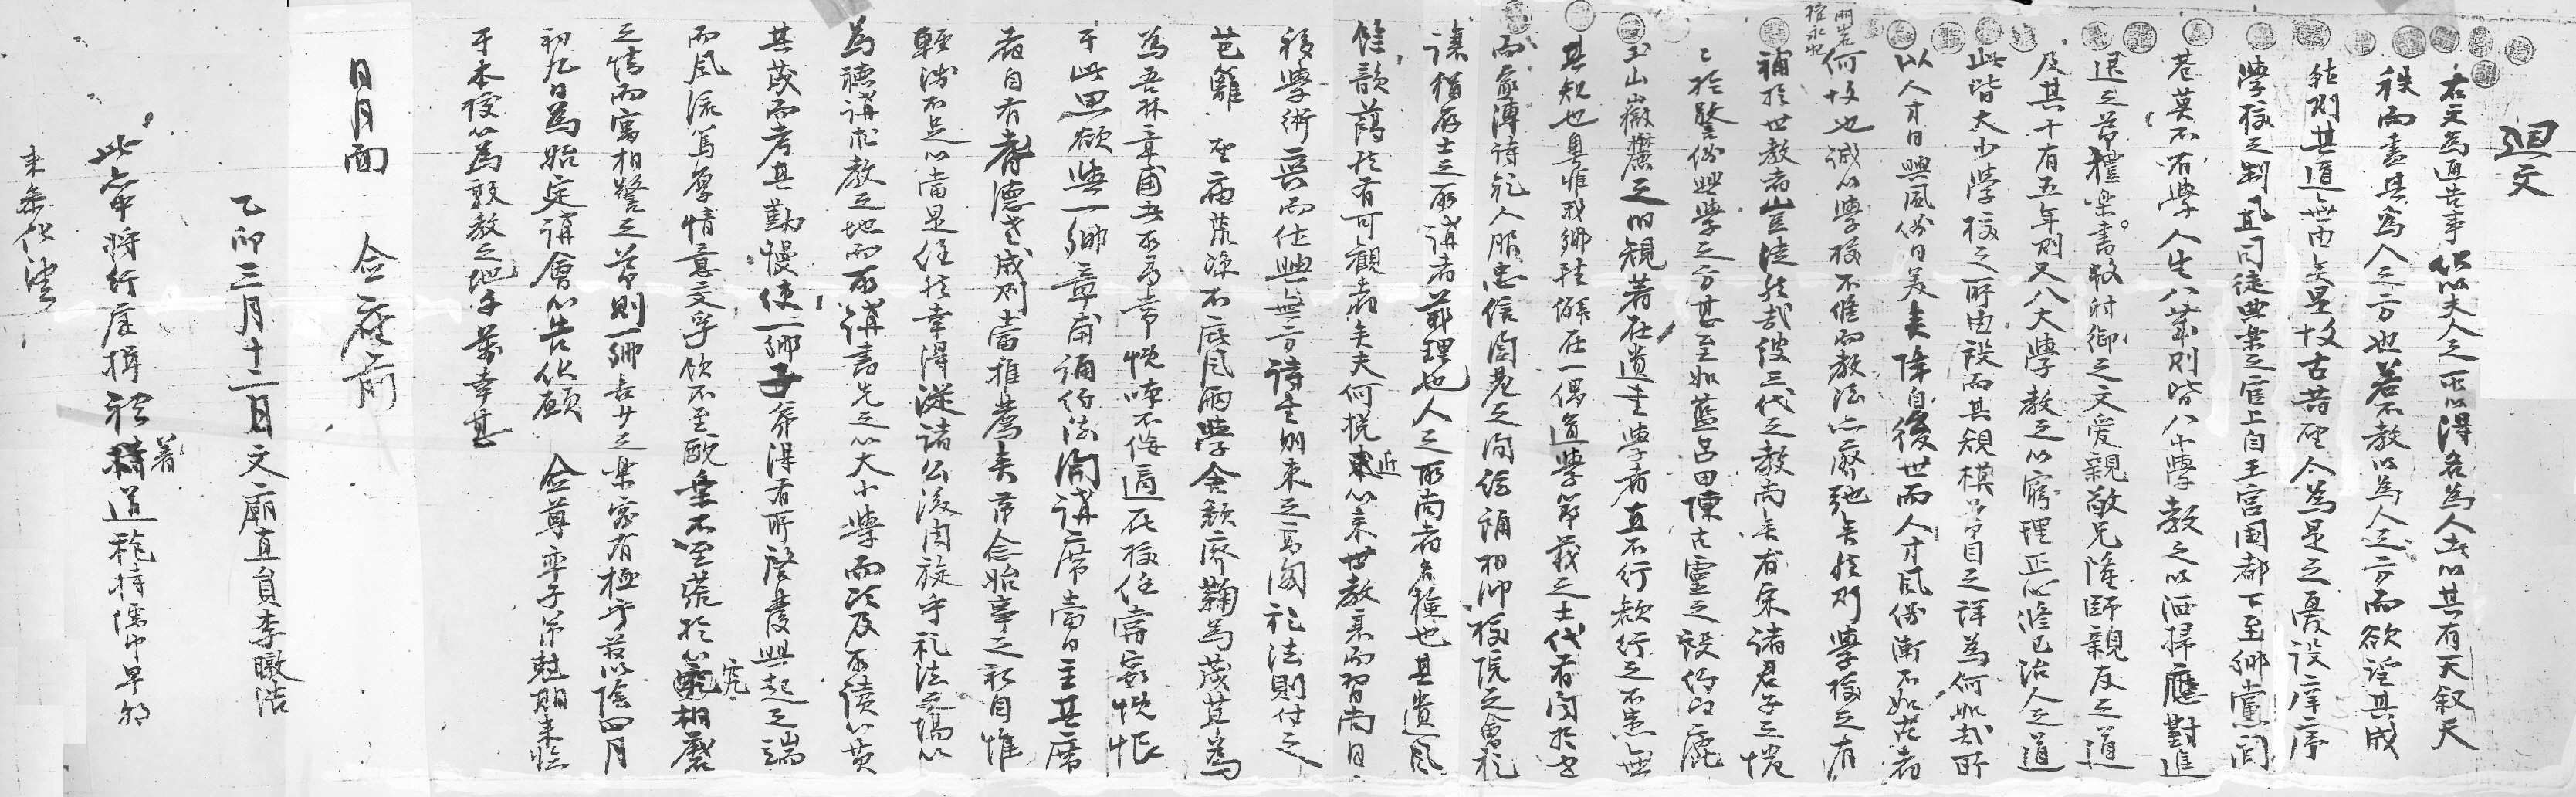 迴文
右文爲通告事伏以夫人之所以得名爲人者以其有天叙天
秩而盡其爲人之方也若不敎以爲人之方而欲望其成
就則其道無由矣是故古昔聖人爲是之憂設庠序
學校之制且司徒典樂之官上自王宮國都下至鄕黨閭
巷莫不有學人生八歲則皆入小學敎之以洒掃應對進
退之節禮樂書數射御之文爱親敬兄隆師親友之道
及其十有五年則又入大學敎之以窮理正心修己治人之道
此皆大小學校之所由設而其規模節目之詳爲何如哉所
以人才日興風俗日美矣降自後世而人才風俗漸不如古者
何故也誠以學校不修而敎法亦廢弛矣然則學校之有
補於世敎者豈淺然哉彼三代之敎尙矣有宋諸君子之惓
惓於斯俗興學之方甚至如藍呂田陳古靈之設約白鹿
玉山嶽麓之明規著在遺書學者直不行欲行之不患無
其規也粤惟我鄕雖僻在一偶道學節義之士代有聞於世
而家傳詩禮人服忠信閭巷之間絃誦相仍校院之會禮
讓猶存士之所講者義理也人之所尙者名檢也其遺風
餘韻藹然有可觀者矣夫何挽近以來世敎衰而習尙日
移學術異而仕興無方詩書則束之高閣禮法則付之
芭籬 聖廟荒凉不庇風雨學舍頹廢鞠爲茂草爲
爲吾林章甫者所爲常慨嘆不侫適在校任當竊慨恨
于此思欲與一鄕章甫誦約法開講席當日主其席
者自有耆德老成則當推薦矣第念始事之初自惟
輕淺不足以當是任然幸得從諸公後周旋乎禮法之場以
爲聽講求敎之地而所講書先之以大小學而次及所讀以黃
其茂而考其勤慢使一鄕子弟得有所啓發興起之端
而風流篤厚情意交孚飮不至酖樂不至荒於以究相磨
之情而寓相警之節則一鄕長少之樂容有極乎玆以陰四月
初九日爲始定講會以告伏願 僉尊率子弟趁期來臨
于本校以爲敦敎之地千萬幸甚
月 日 面 僉座前
乙卯三月十二日文廟直員李暾浩
此命將行座揖禮 著道袍持儒巾早郊
來參伏望